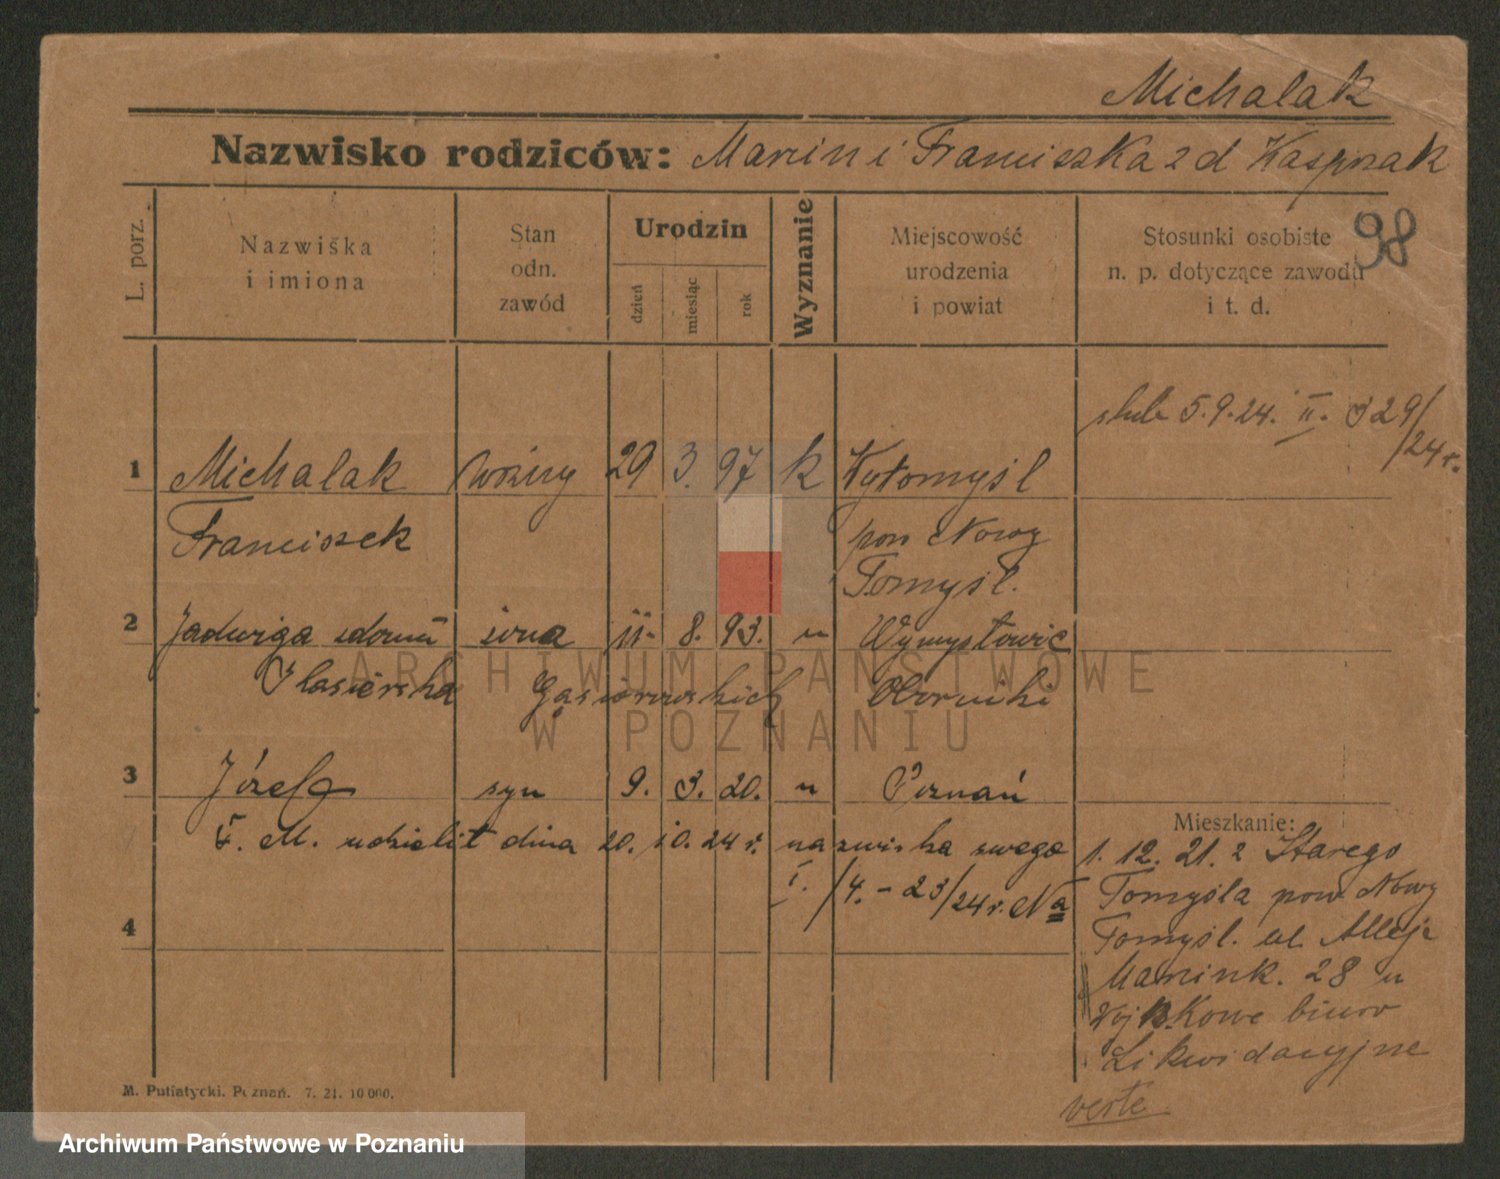 Michalak
Nazwisko rodziców: Marcin i Franciszka z d Kasprzak
L. porz.
Nazwiska
i imiona
Stan
odn.
zawód
Urodzin
dzień
miesiąc
rok
Wyznanie
Miejscowość
urodzenia
i powiat
Stosunki osobiste
n. p. dotyczące zawodu
i t. d.
98
ślub 5.9.24. II. 329/24 r.
1 Michalak woźny 29 3. 97 k Wytomyśl
Franciszek pow Nowy
Tomyśl.
2 Jadwiga zdomu żona 11. 8. 93. " Wymysłowie
Gąsiorowskich Oborniki
3 Józef syn 9. 3. 20. " Poznań
F. M. udzielił dnia 20. 10. 24 r. nazwiska swego
I. /4. - 23/24 r. Na
4
Mieszkanie:
1. 12. 21. z Starego
Tomyśla pow Nowy
Tomyśl. ul. Alleje
Marcink. 28 u
Wojskowe biuro
Likwidacyjne
verte
M. Putiatycki. Poznań. 7. 21. 10 000.
ARCHIWUM PAŃSTWOWE
W POZNANIU
Archiwum Państwowe w Poznaniu